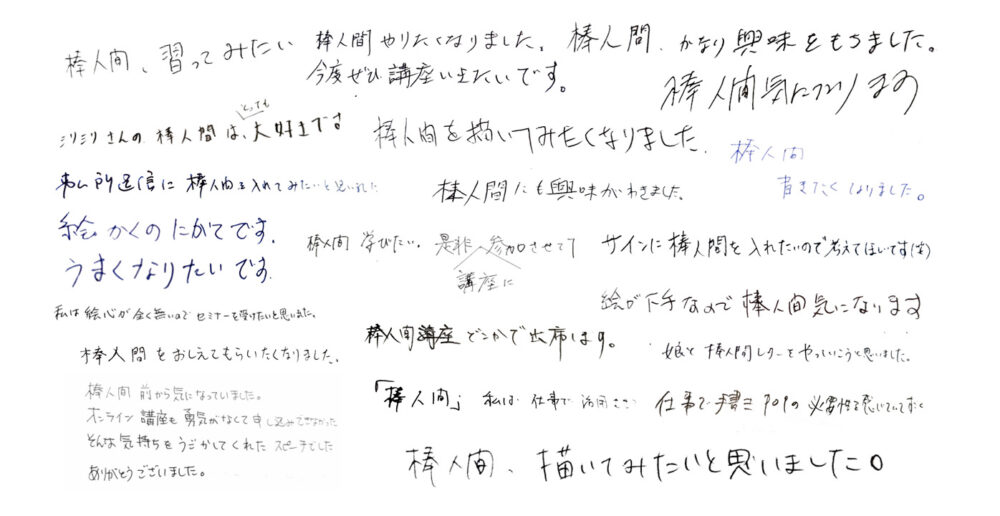 棒人間、習ってみたい
棒人間やりたくなりました、
今度ぜひ講座いきたいです。
棒人間、かなり興味をもちました。
棒人間気になります
とっても
ミリミリさんの棒人間は、大好きです
棒人間を描いてみたくなりました。
棒人間
書きたくなりました。
棒人間を入れてみたいと思いました
棒人間にも興味がわきました。
絵かくのにがてです。
うまくなりたいです。
棒人間 学びたい。是非参加させて下
講座に
サインに棒人間を入れたいので考えてほしいです(笑)
私は絵心が全く無いのでセミナーを受けたいと思いました。
絵が下手なので棒人間気になります
棒人間講座どこかで出席します。
棒人間をおしえてもらいたくなりました。
娘と棒人間レターをやっていこうと思いました。
棒人間 前から気になっていました。
オンライン講座も勇気がなくて申し込みできなかった
そんな気持ちをうごかしてくれたスピーチでした
ありがとうございました。
「棒人間」私は仕事で活用
仕事で手書きPOPの必要性を感じていて
棒人間、描いてみたいと思いました。